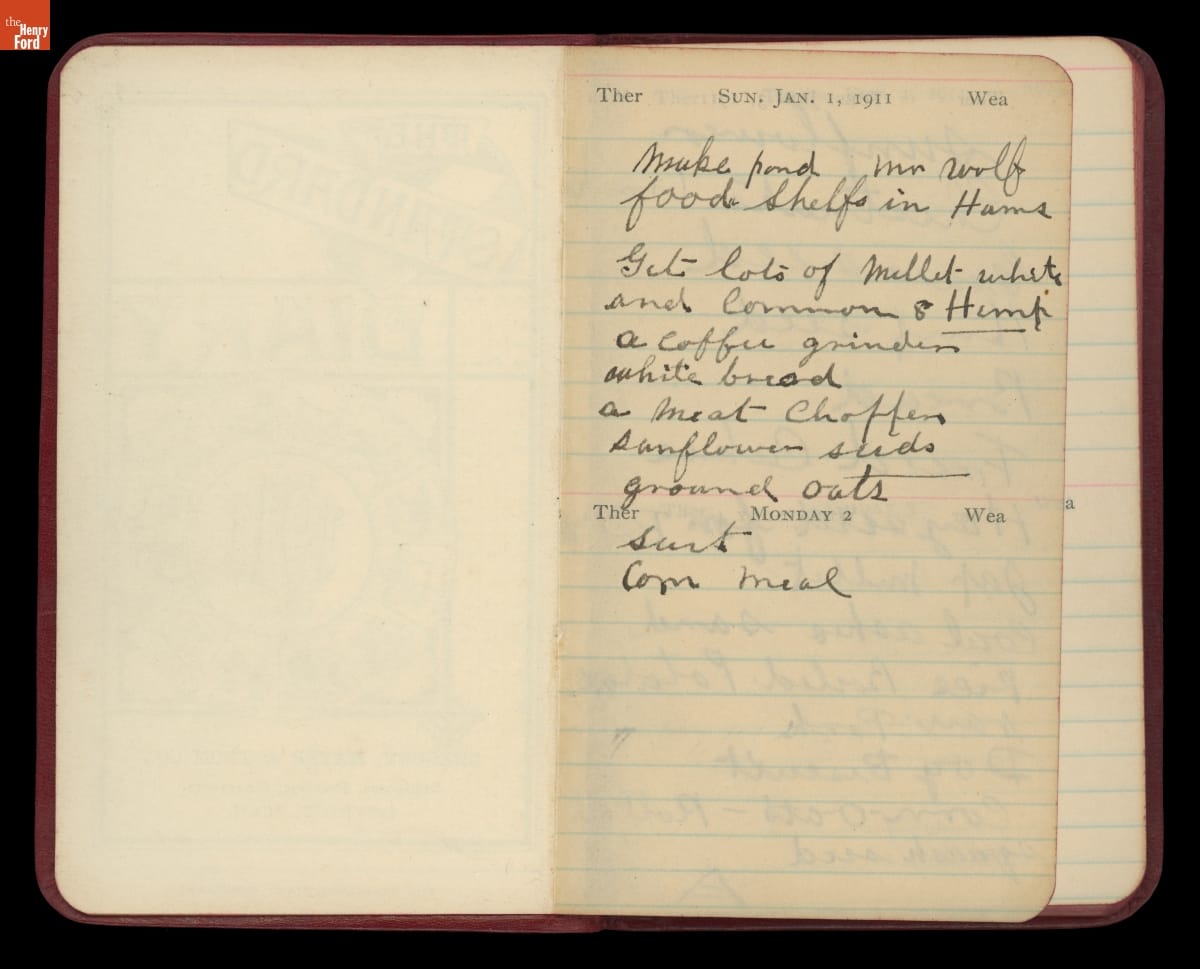 the
Henry
Ford
Ther SUN. JAN. 1, 1911 Wea
Make pond Mr Wolf
food shelfs in Hams
Gets lots of Millet white
and Common & Hemp
a coffee grinder
white bread
a meat Chopper
sunflower seeds
ground oats
Ther MONDAY 2 Wea
suet
Corn meal
a